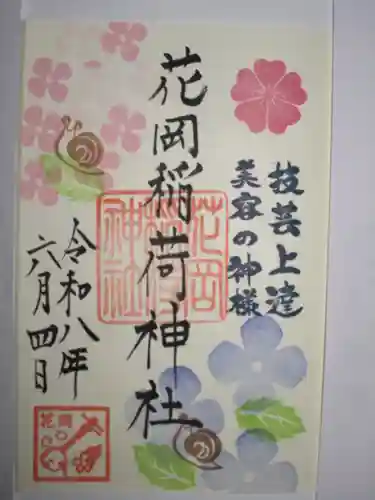 技芸上達
美容の神様
花岡稲荷神社
花岡稲荷神社
令和八年
六月四日
花岡